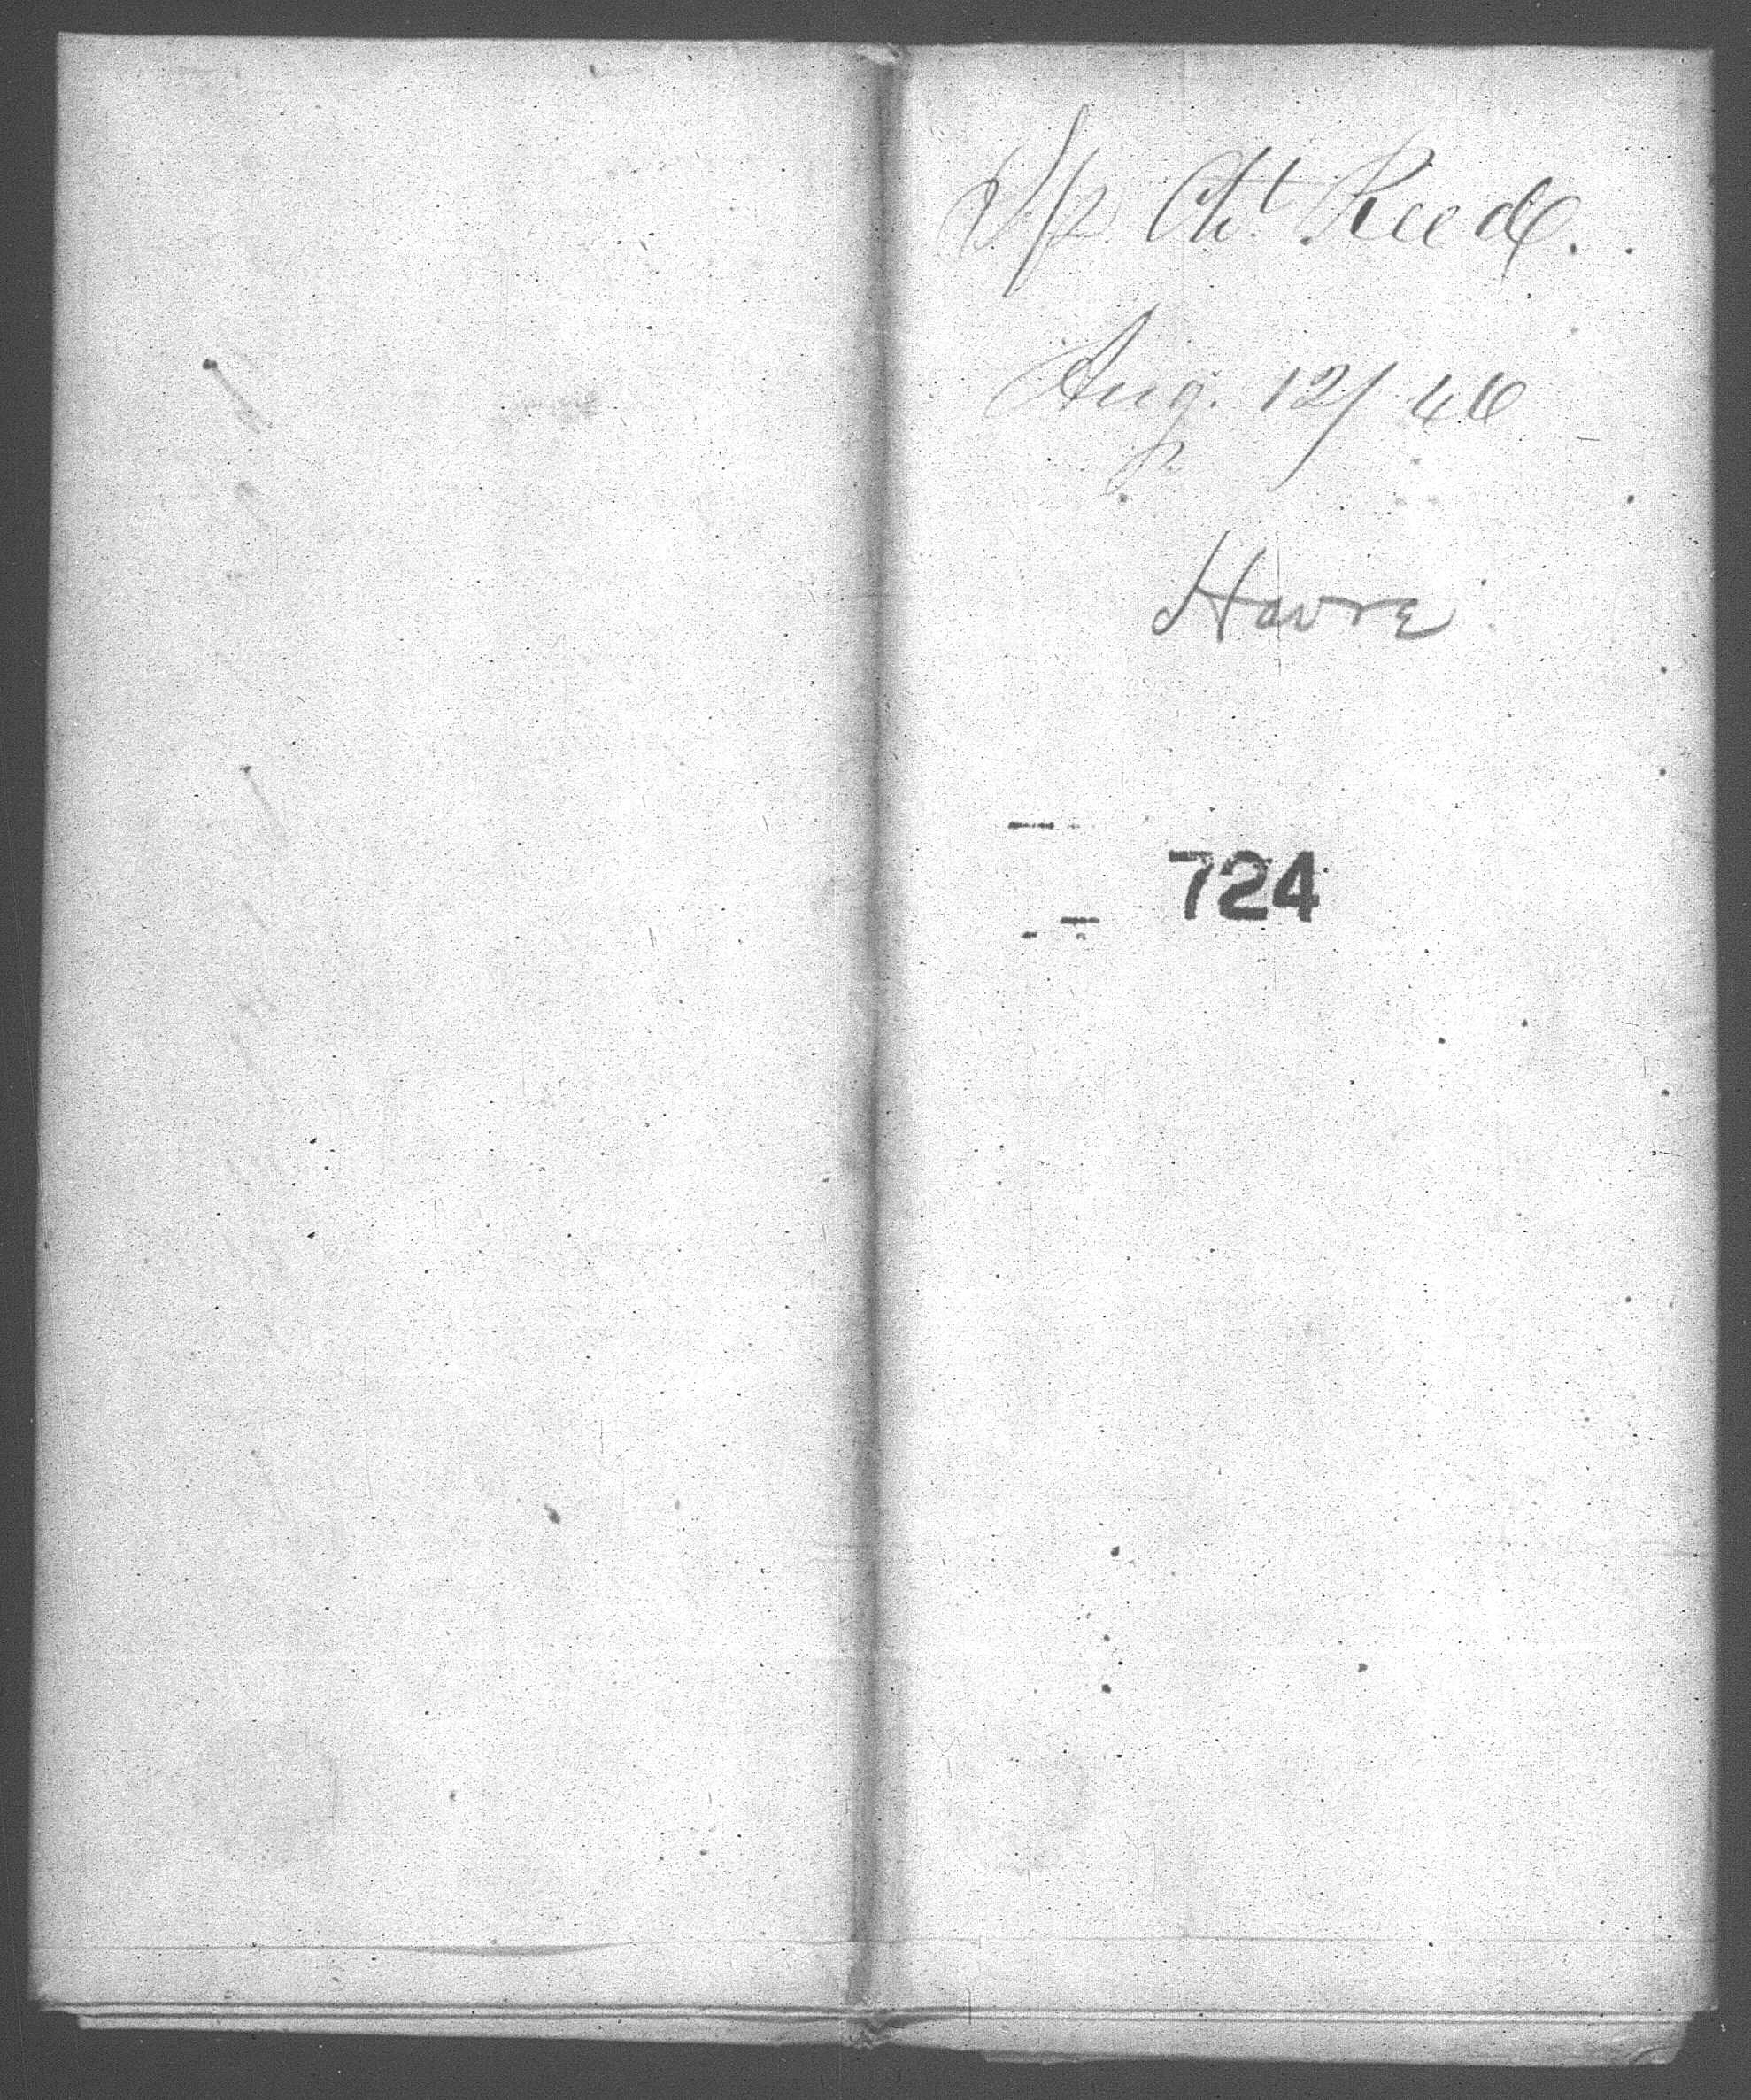 S/p Cht. Reed.
Aug. 12/46
Havre
724